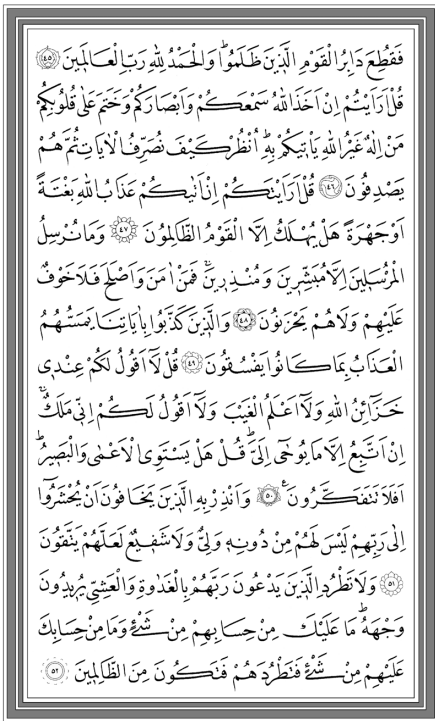 فَقُطِعَ دَابِرُ الْقَوْمِ الَّذِينَ ظَلَمُواۜ وَالْحَمْدُ لِلّٰهِ رَبِّ الْعَالَمِينَ ﴿٤٥﴾
قُلْ اَرَاَيْتُمْ اِنْ اَخَذَ اللّٰهُ سَمْعَكُمْ وَاَبْصَارَكُمْ وَخَتَمَ عَلٰى قُلُوبِكُمْ
مَنْ اِلٰهٌ غَيْرُ اللّٰهِ يَأْتِيكُمْ بِهِۜ اُنْظُرْ كَيْفَ نُصَرِّفُ الْاٰيَاتِ ثُمَّ هُمْ
يَصْدِفُونَ ﴿٤٦﴾ قُلْ اَرَاَيْتَكُمْ اِنْ اَتٰيكُمْ عَذَابُ اللّٰهِ بَغْتَةً
اَوْ جَهْرَةً هَلْ يُهْلَكُ اِلَّا الْقَوْمُ الظَّالِمُونَ ﴿٤٧﴾ وَمَا نُرْسِلُ
الْمُرْسَلِينَ اِلَّا مُبَشِّرِينَ وَمُنْذِرِينَۚ فَمَنْ اٰمَنَ وَاَصْلَحَ فَلَا خَوْفٌ
عَلَيْهِمْ وَلَا هُمْ يَحْزَنُونَ ﴿٤٨﴾ وَالَّذِينَ كَذَّبُوا بِاٰيَاتِنَا يَمَسُّهُمُ
الْعَذَابُ بِمَا كَانُوا يَفْسُقُونَ ﴿٤٩﴾ قُلْ لَٓا اَقُولُ لَكُمْ عِنْدِي
خَزَٓائِنُ اللّٰهِ وَلَٓا اَعْلَمُ الْغَيْبَ وَلَٓا اَقُولُ لَكُمْ اِنِّي مَلَكٌۚ
اِنْ اَتَّبِعُ اِلَّا مَا يُوحٰٓى اِلَيَّۜ قُلْ هَلْ يَسْتَوِي الْاَعْمٰى وَالْبَصِيرُۜ
اَفَلَا تَتَفَكَّرُونَ۟ ﴿٥٠﴾ وَاَنْذِرْ بِهِ الَّذِينَ يَخَافُونَ اَنْ يُحْشَرُٓوا
اِلٰى رَبِّهِمْ لَيْسَ لَهُمْ مِنْ دُونِهِ وَلِيٌّ وَلَا شَفِيعٌ لَعَلَّهُمْ يَتَّقُونَ
﴿٥١﴾ وَلَا تَطْرُدِ الَّذِينَ يَدْعُونَ رَبَّهُمْ بِالْغَدٰوةِ وَالْعَشِيِّ يُرِيدُونَ
وَجْهَهُۜ مَا عَلَيْكَ مِنْ حِسَابِهِمْ مِنْ شَيْءٍ وَمَا مِنْ حِسَابِكَ
عَلَيْهِمْ مِنْ شَيْءٍ فَتَطْرُدَهُمْ فَتَكُونَ مِنَ الظَّالِمِينَ ﴿٥٢﴾